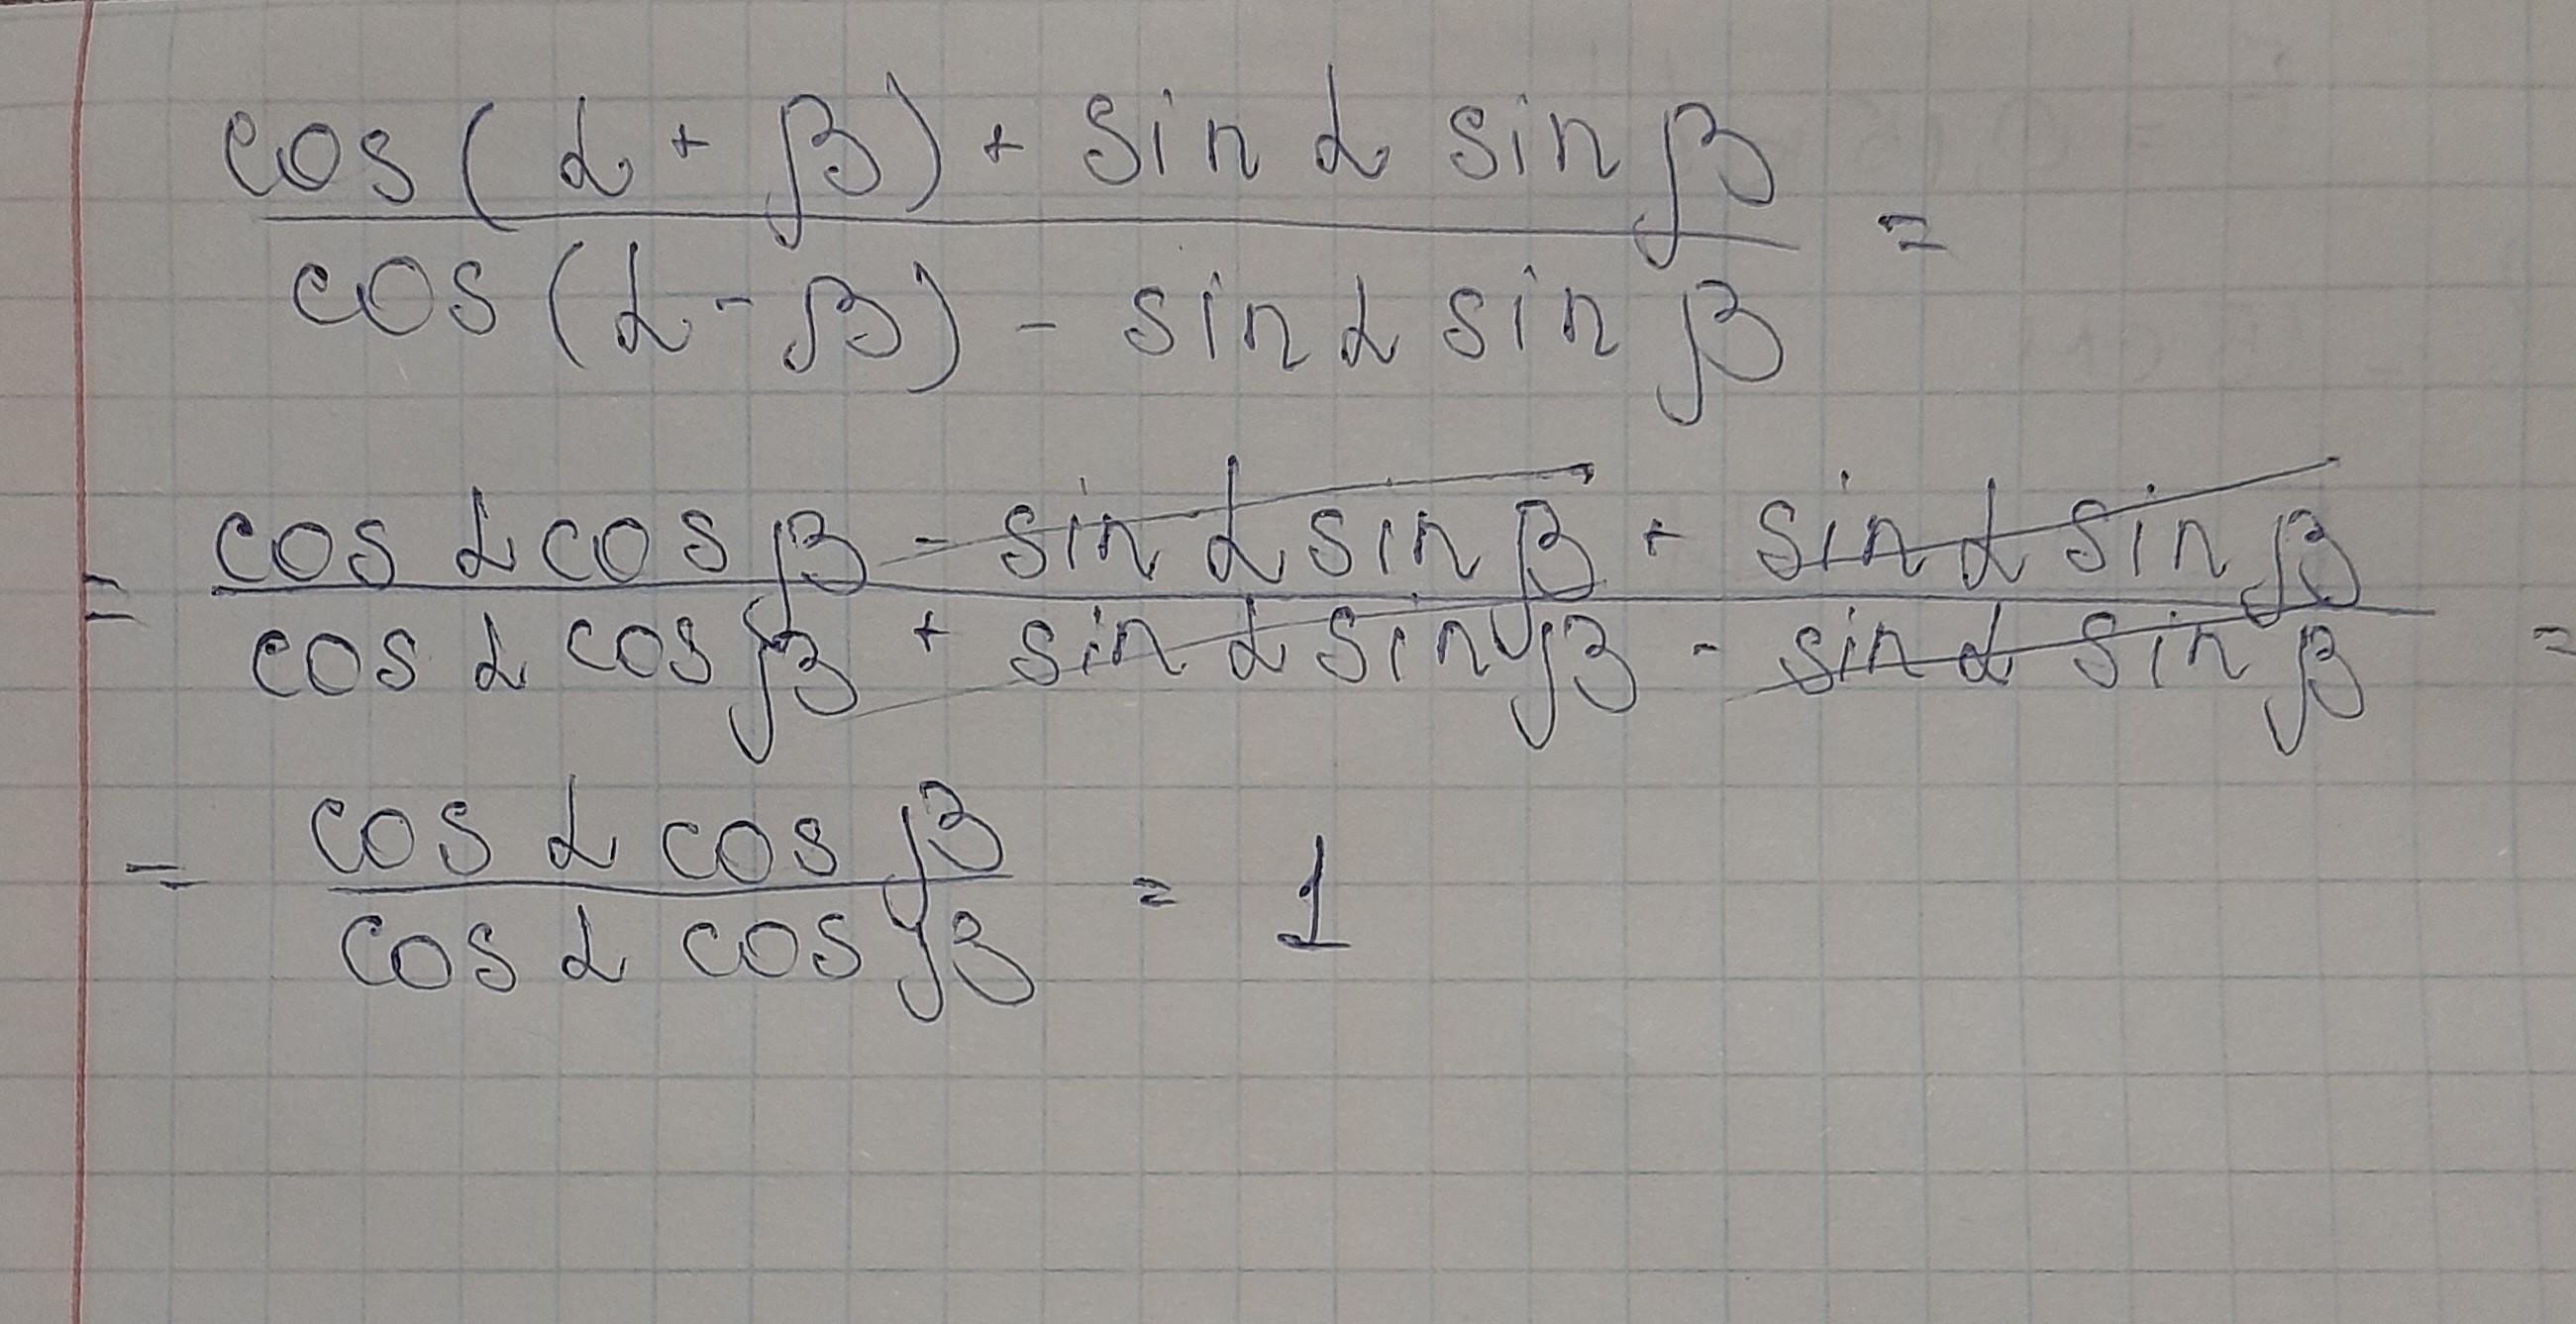 cos(α + β) + sin α sin β
cos(α - β) - sin α sin β =
= cos α cos β - sin α sin β + sin α sin β
cos α cos β + sin α sin β - sin α sin β =
= cos α cos β
cos α cos β = 1